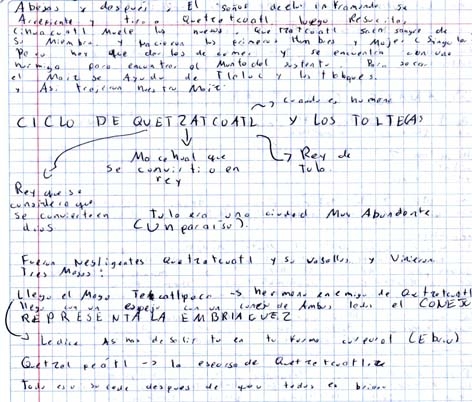 Abejas y despues, El señor declu intramundo se
Arrepiente y tiro a Quetzatcoatl, luego Resucito,
Cihuacoatl Muele los huesos, Quetzatcoatl sacó sangre de
su Miembro y nacieron los primeros Hombres y Mujer (Sangre
Pero hay que darles de comer y se encuentra con una
hormiga para encontrar el Monte del sustento. Para sacar
el Maiz se Ayudo de Tlaloc y los tloques.
y Asi trajeron nuestro Maiz.
Cuando es humano
CICLO DE QUETZATCOATL Y LOS TOLTECAS
Macehual que se convirtio en rey
Rey de Tula.
Rey que se considera que se convierte en dios
Tula era una ciudad Muy Abundante
(Un paraiso).
Fueron Negligentes Quetzatcoatl y su vasallos y Vinieron
Tres Magos:
Llego el Mago Tezcatlpoca -> hermano enemigo de Quetzatcoatl
llego con un espejo con un conejo de Ambos lados el CONEJO
REPRESENTA LA EMBRIAGUEZ
Le dice As has de salir tu en tu forma corporal (Ebrio)
Quetzal peatl -> la esposa de Quetzatcoatl
Todo eso sucede despues de que todos en